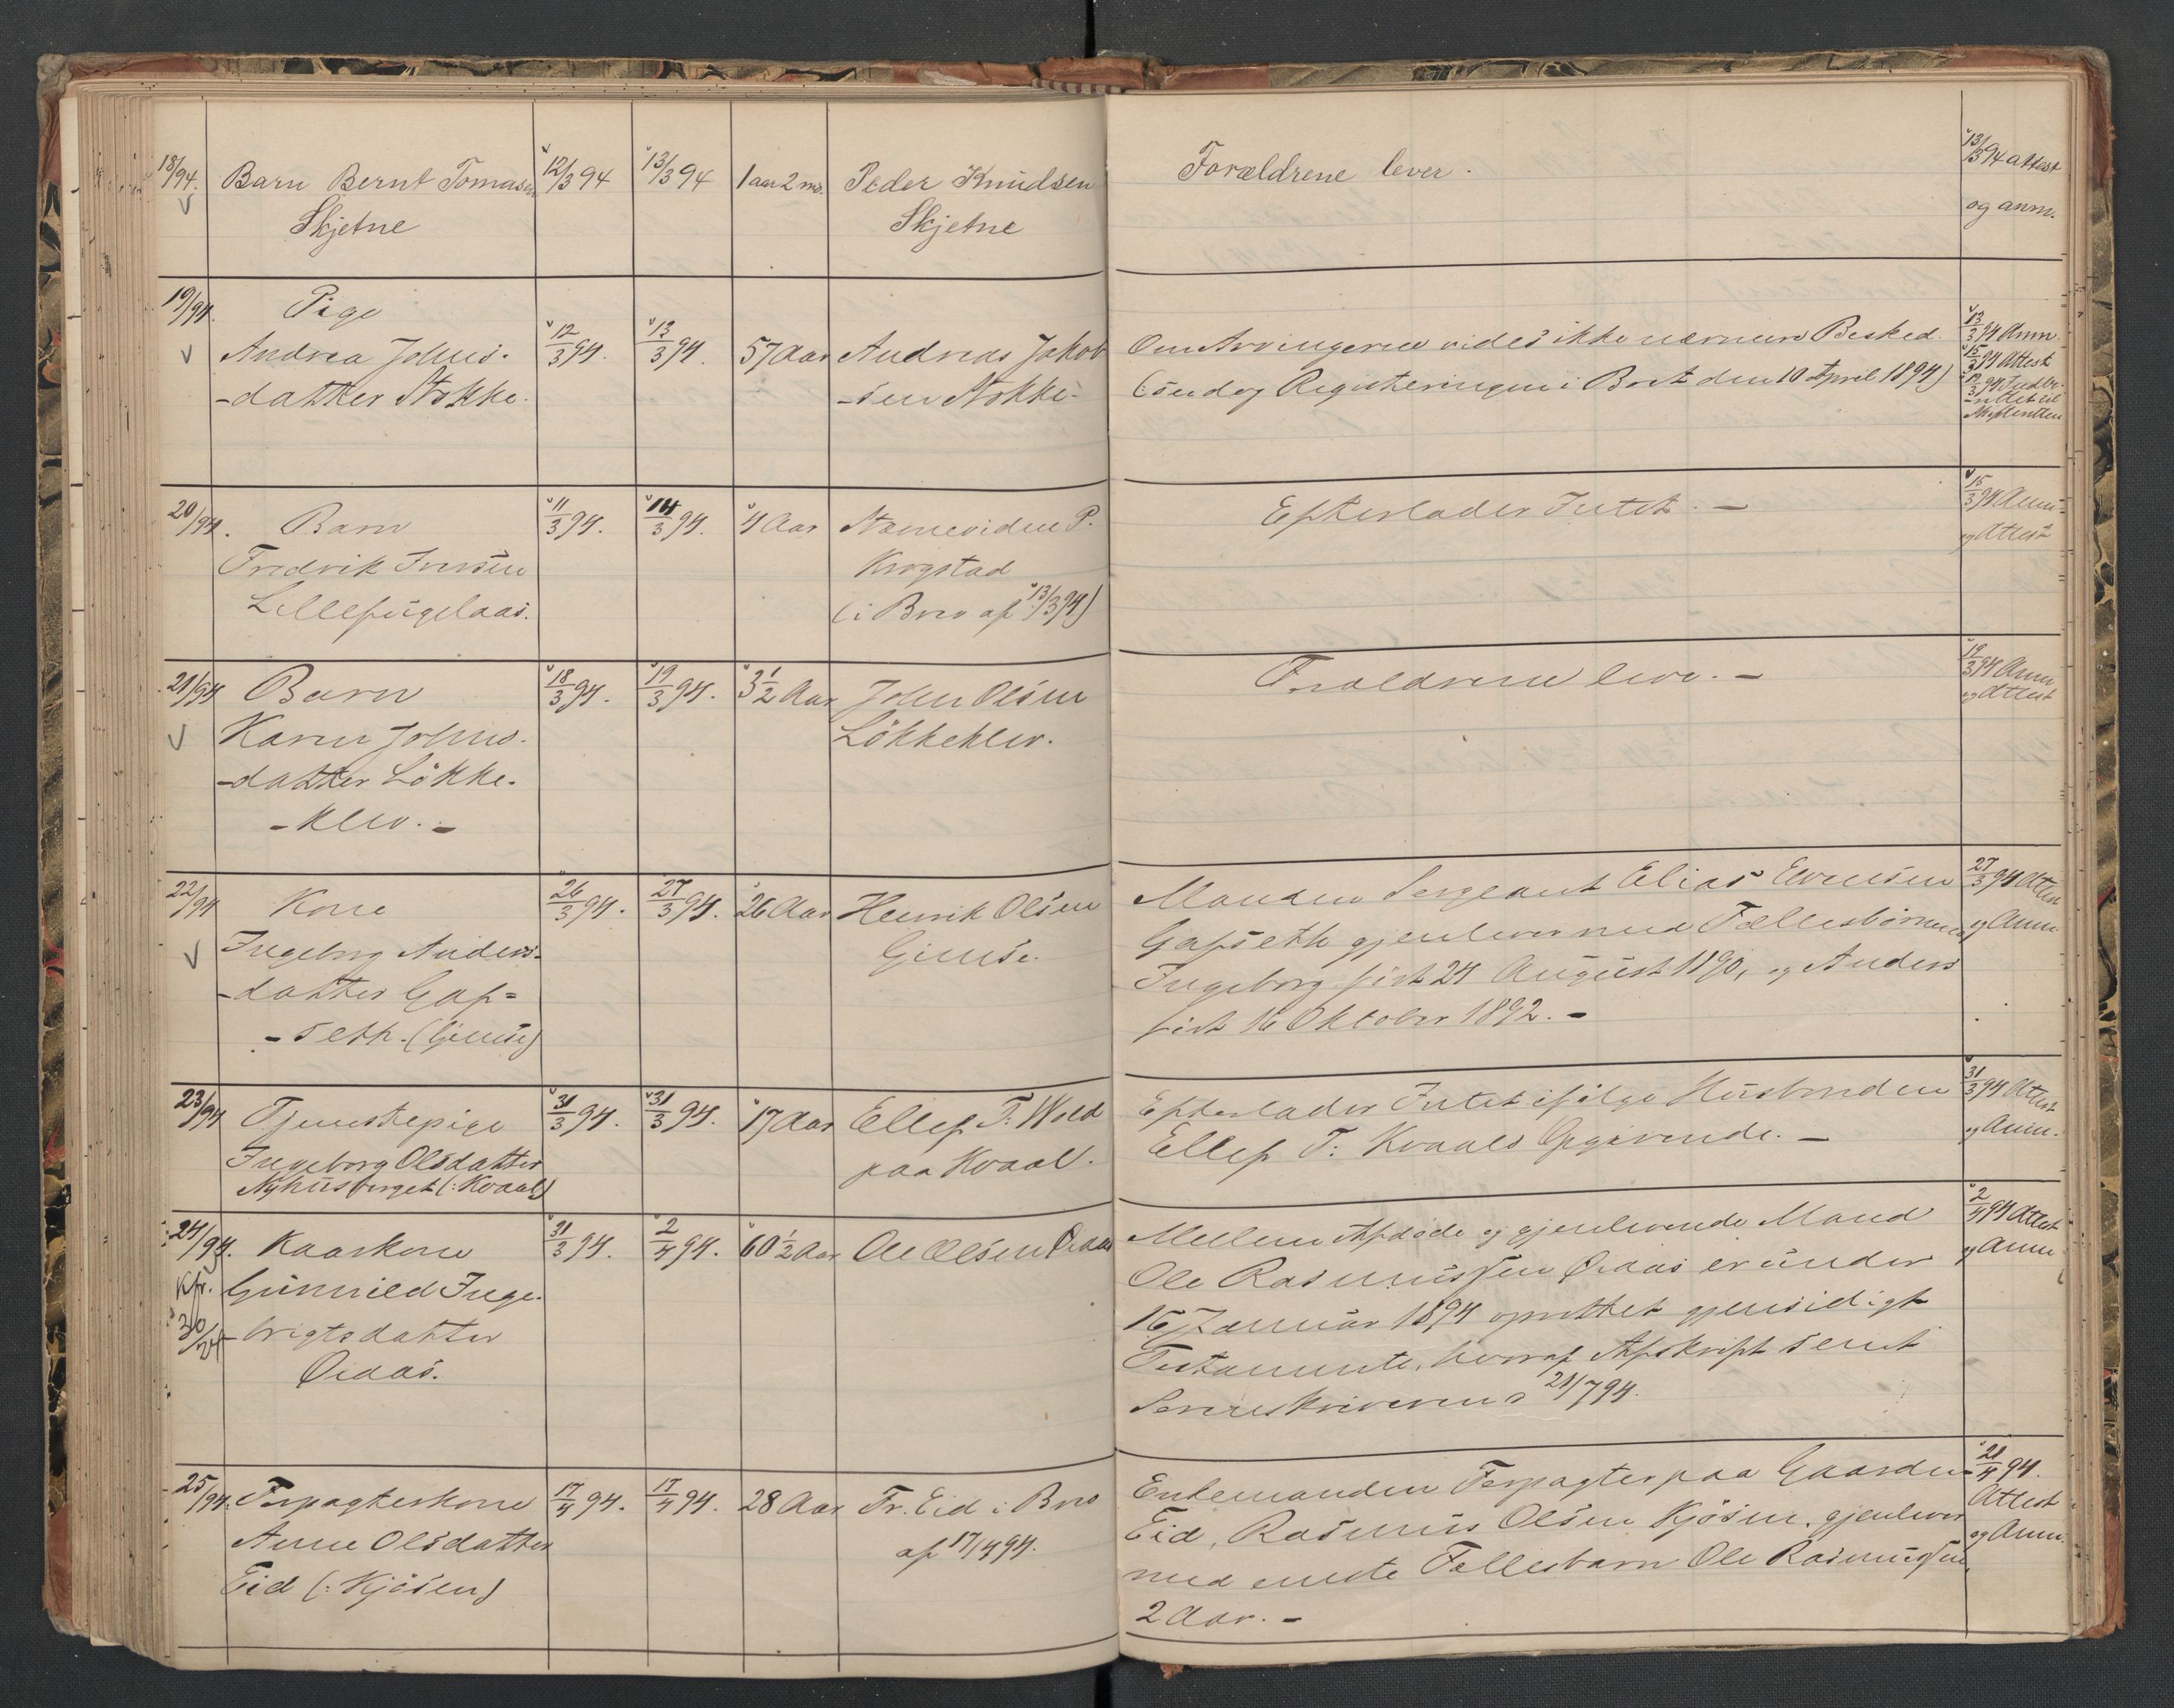 18/94. Barn Bernt Tomasen 12/3 94 13/3 94 1 aar 2 md. Peder Knudsen Forældrene lever. 13/3 94 attest
Skjetne Skjetne og anm.
19/94. Pige
Andrea Johns- 12/3 94. 13/3 94. 57 Aar Andreas Jakob Om Arvingerne vides ikke nærmere Besked. 13/3 94 Anm.
-datter Stokke. -sen Stokke (se dog Registeringen i Bost den 10 April 1894) 15/3 94 Attest
20/94. Barn 11/3 94. 14/3 94. 4 Aar Stamevidne P. Efterlader Intet. - 15/3 94 Anm.
Fredrik Iversen Krogstad og Attest
Lillefuglaas. (i Brev af 13/3 94)
21/94 Barn 18/3 94. 19/3 94. 3 1/2 Aar John Olsen Forældrene leve. - 19/3 94 Anm
Karen Johns- Løkkeklev. og Attest
-datter Løkke-
-klev. -
22/94 Kone 26/3 94. 27/3 94. 26 Aar Henrik Olsen Manden Sergeant Elias Evensen 27/3 94 Attest
Ingeborg Anders- Gimse. Gafseth gjenlever med Fællesbørnene og Anm.
-datter Gaf= Ingeborg født 24 August 1890, og Anders
-seth. (Gimse) født 16 Oktober 1892. -
23/94 Tjenstepige 31/3 94. 31/3 94. 17 Aar Ellef T. Wold Efterlader Intet ifølge Husbonden 31/3 94 Attest
Ingeborg Olsdatter paa Kvaal. Ellef T. Kvaals Opgivende. - og Anm.
Nyhusberget (: Kvaal)
24/94. Kaarkone 31/3 94. 2/4 94. 60 1/2 Aar Ole Olsen Øiaas Mellem Afdøde og gjenlevende Mand 2/4 94 Attest
Kfr. Gunnild Inge- Ole Rasmussen Øiaas er under og Anm
30/24 -brigtsdatter 16 Januar 1894 oprettet gjensidigt
Øiaas. Testamente, hvoraf Afskrift sendt
Sorenskriveren 21/7 94.
25/94. Forpagterkone 17/4 94. 17/4 94. 28 Aar Fr. Eid i Brev Enkemanden Forpagter paa Gaarden 21/4 94.
Anne Olsdatter af 17/4 94. Eid, Rasmus Olsen Kjøsen, gjenlever Attest
Eid (: Kjøsen) med eneste Fællesbarn Ole Rasmussen, og Anm.
2 Aar. -